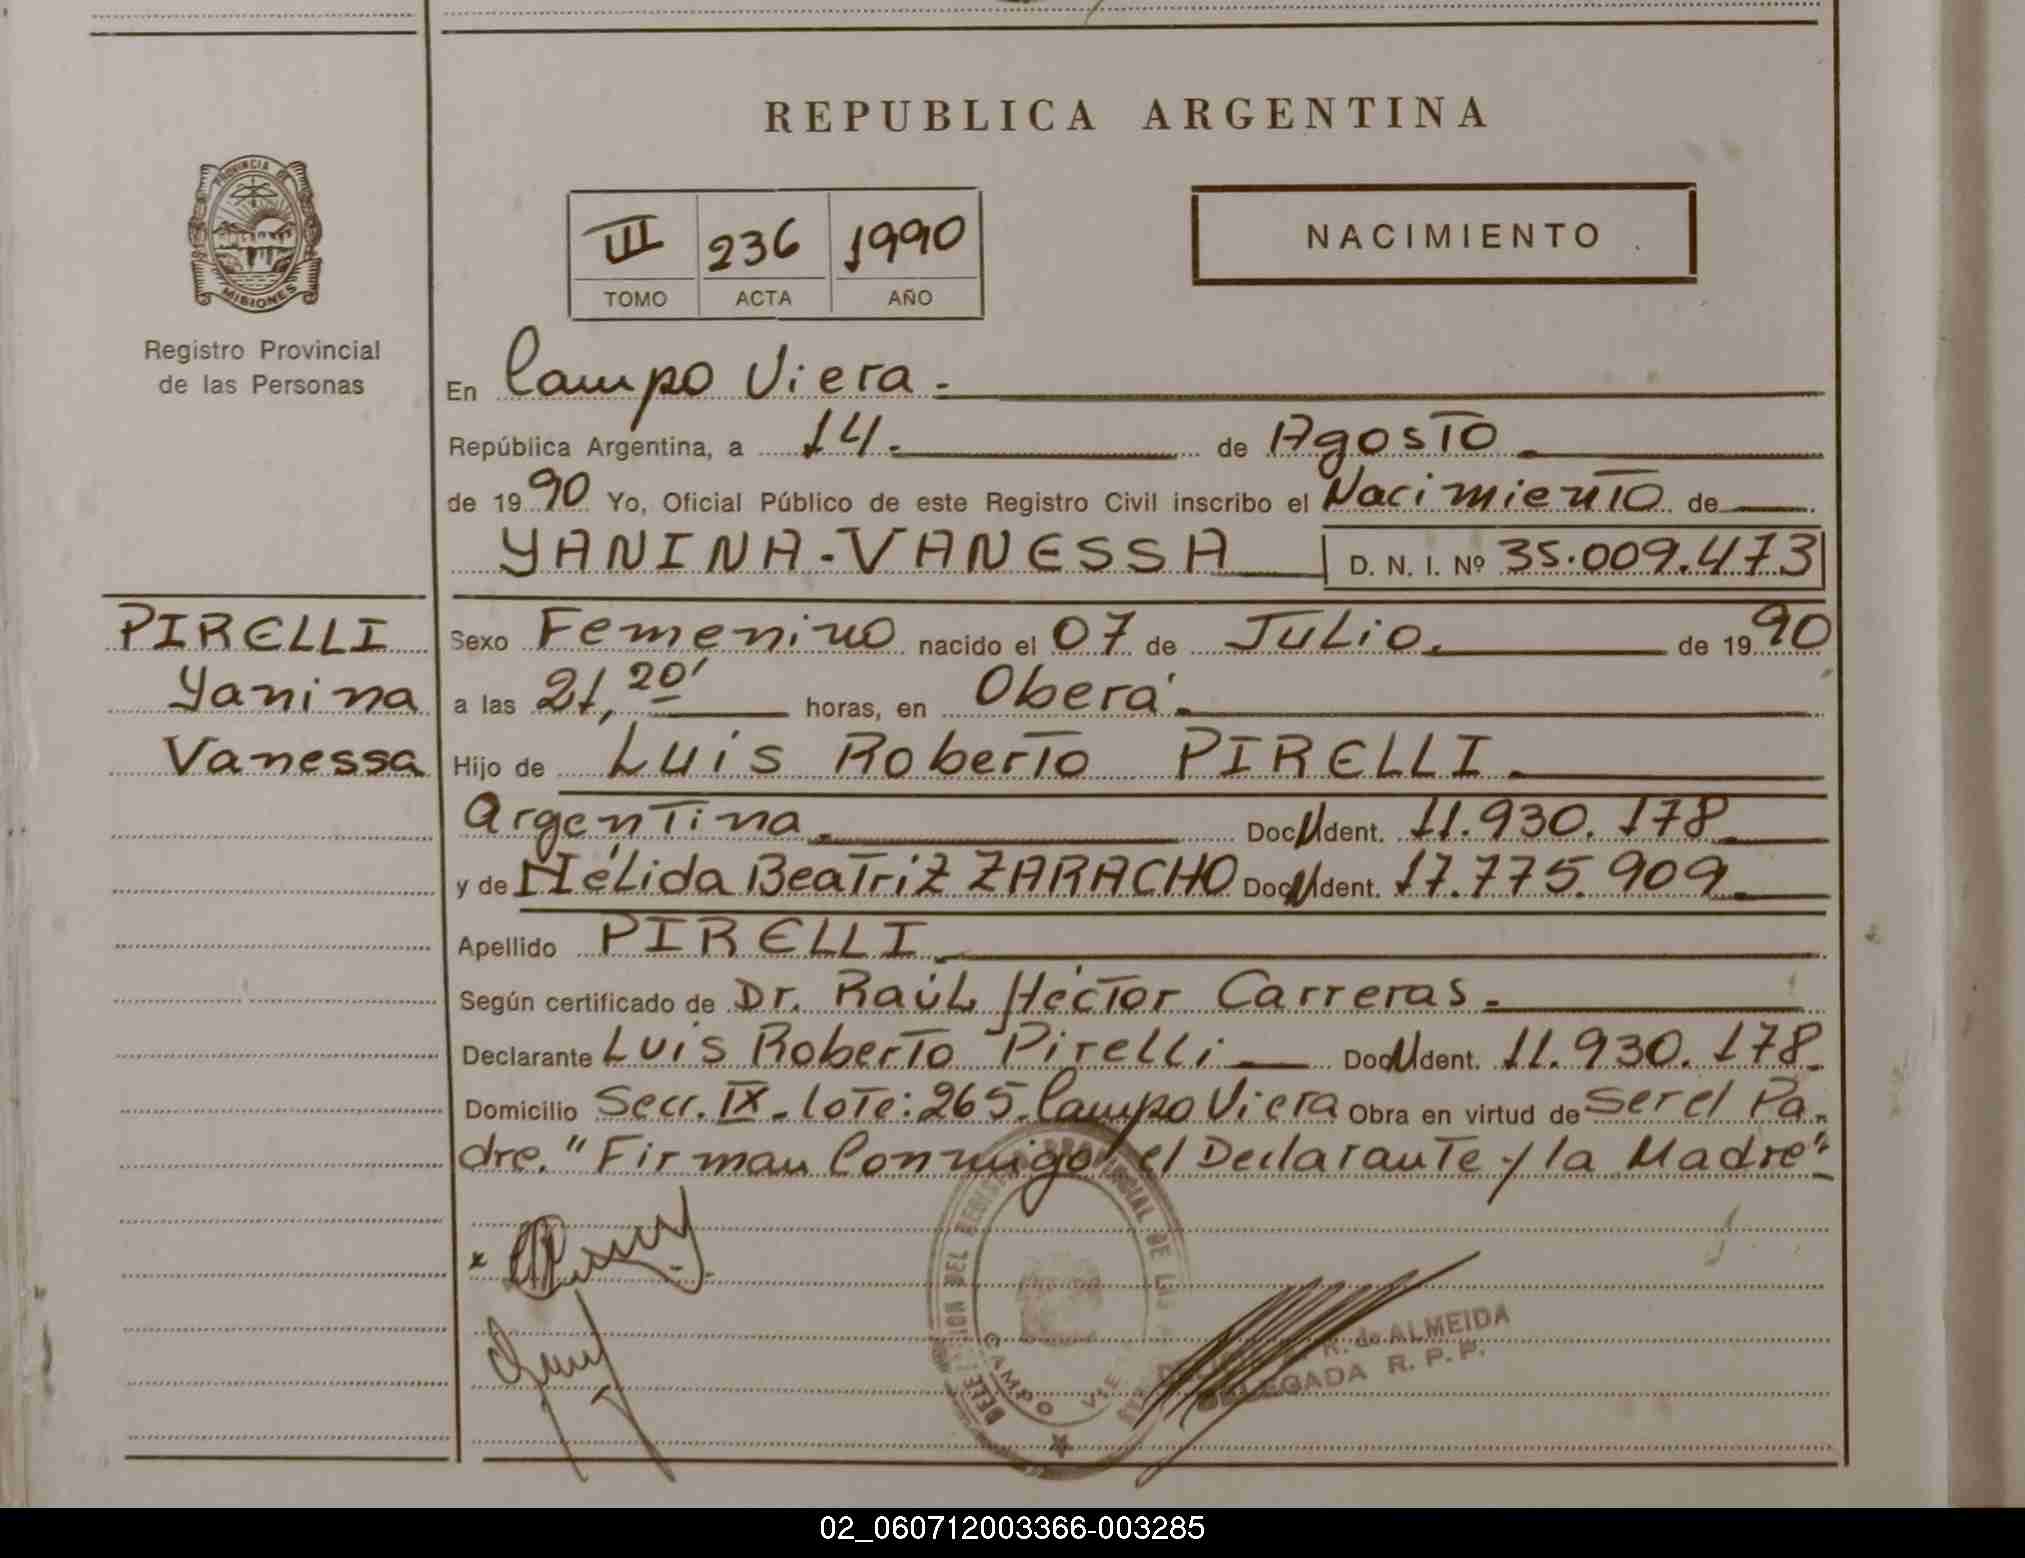 REPUBLICA ARGENTINA
PROVINCIA DE
MISIONES
Registro Provincial
de las Personas
III 236 1990
TOMO ACTA AÑO
NACIMIENTO
En Campo Viera.
República Argentina, a 14. de Agosto
de 1990 Yo, Oficial Público de este Registro Civil inscribo el Nacimiento de
YANINA-VANESSA D. N. I. Nº 35.009.473
PIRELLI
Yanina
Vanessa
Sexo Femenino nacido el 07 de Julio. de 1990
a las 21,20' horas, en Oberá.
Hijo de Luis Roberto PIRELLI.
Argentina. Doc. Ident. 11.930.178
y de Nélida Beatriz ZARACHO Doc. Ident. 17.775.909.
Apellido PIRELLI.
Según certificado de Dr. Raúl Héctor Carreras.
Declarante Luis Roberto Pirelli Doc. Ident. 11.930.178.
Domicilio Secc. IX. Lote: 265. Campo Viera Obra en virtud de ser el Pa-
dre. "Firman Conmigo el Declarante y la Madre"
CAMPO VIE
R. de ALMEIDA
DELEGADA R. P. P.
02_060712003366-003285